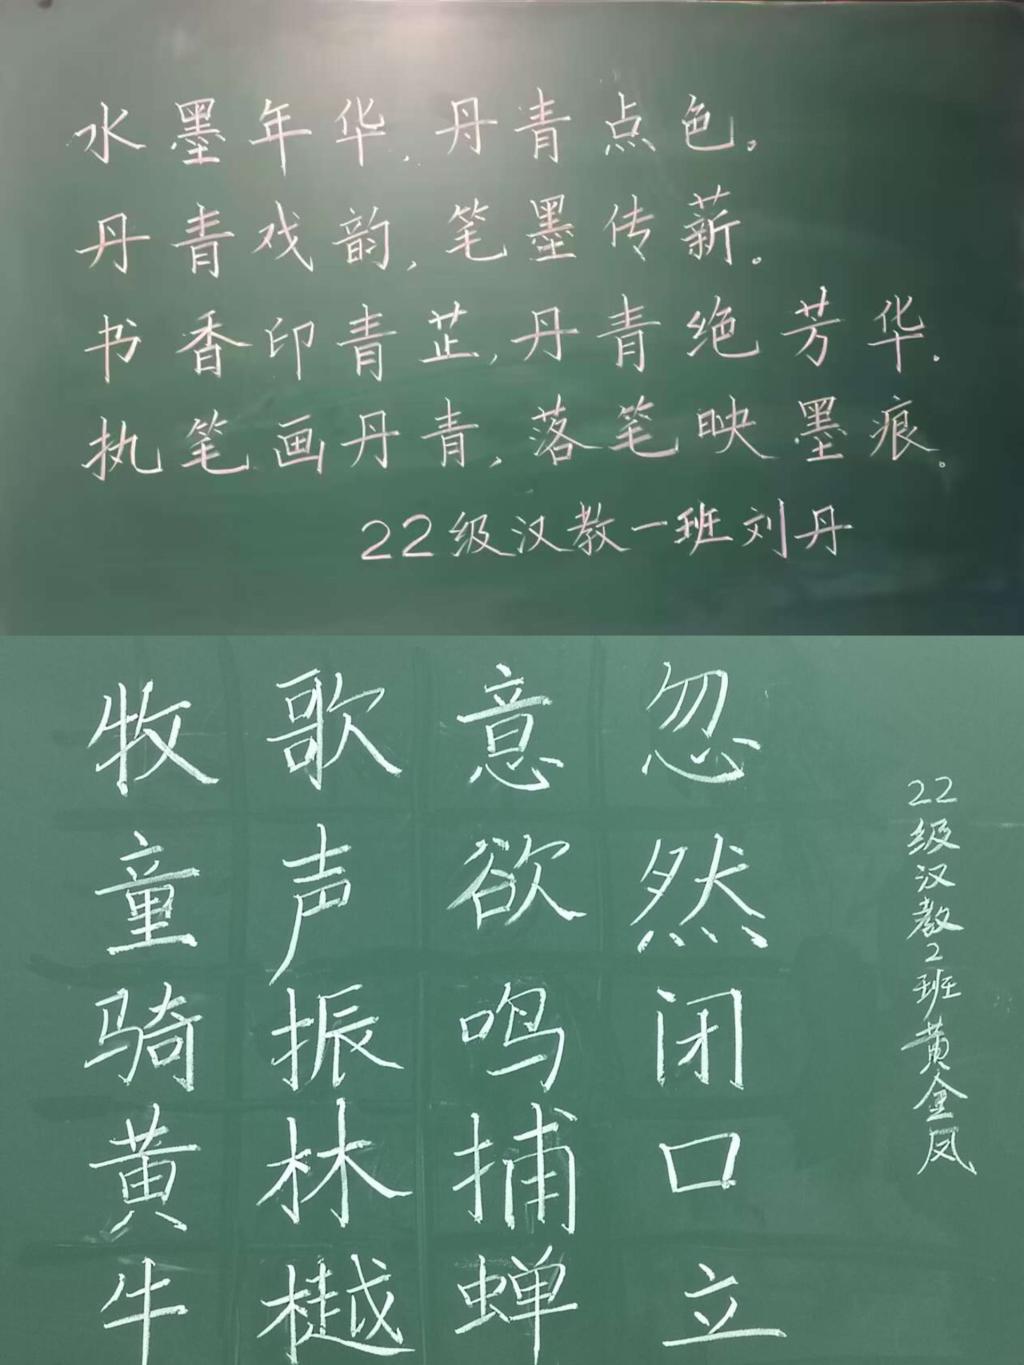 水墨年华,丹青点色。
丹青戏韵,笔墨传薪。
书香印青芷,丹青绝芳华.
执笔画丹青,落笔映墨痕。
22级汉教一班刘丹
牧童骑黄牛
歌声振林樾
意欲鸣捕蝉
忽然闭口立
22级汉教2班黄金凤